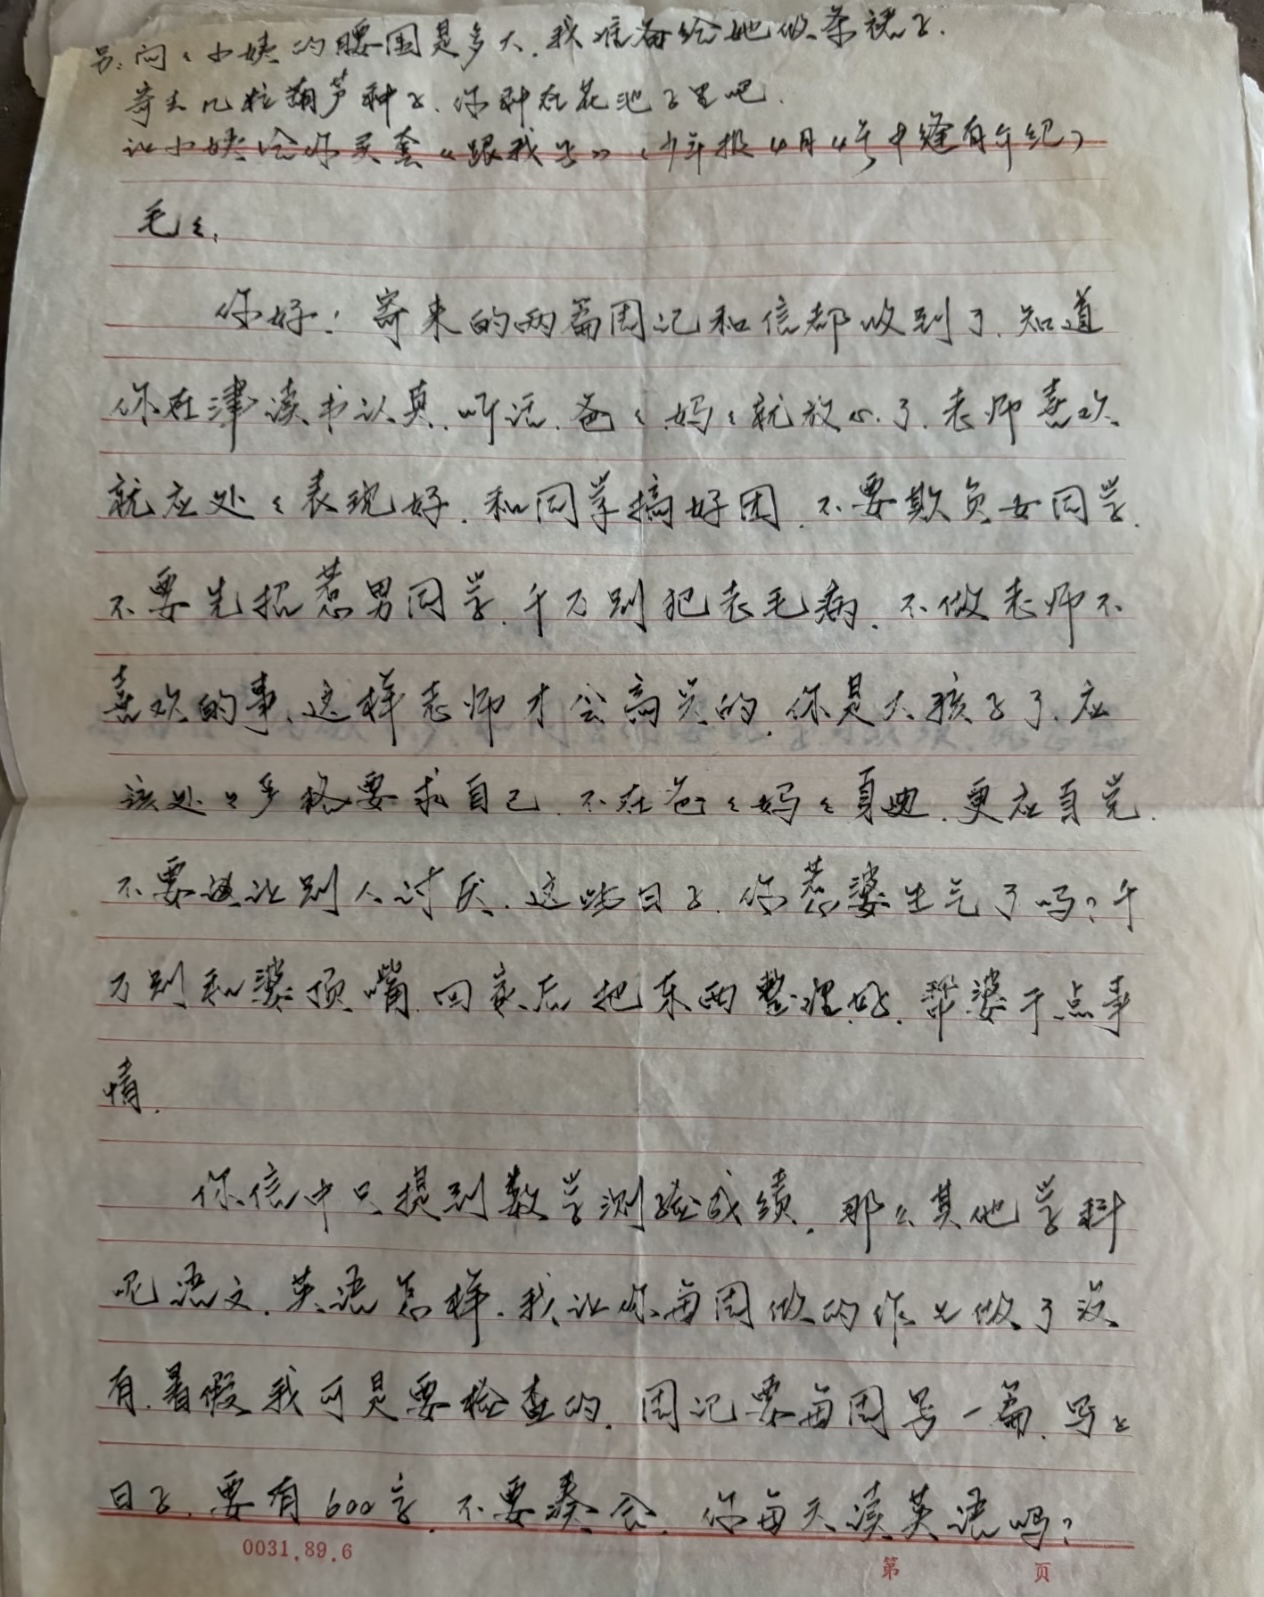 另:问々小姨的腰围是多大,我准备给她做条裙子.
寄去几粒葫芦种子,你种在花池子里吧.
让小姨给你买套《跟我学》(少年报4月4号中缝有介绍)
毛々:
你好!寄来的两篇周记和信都收到了.知道
你在津读书认真,听话,爸々妈々就放心了.老师喜欢
就应处々表现好.和同学搞好团,不要欺负女同学.
不要先招惹男同学,千万别犯老毛病.不做老师不
喜欢的事,这样老师才会高兴的.你是大孩子了,应
该处々严格要求自己.不在爸々妈々身边,更应自觉.
不要让别人讨厌.这些日子,你惹婆生气了吗?千
万别和婆顶嘴,回家后把东西整理好,帮婆干点事
情.
你信中只提到数学测验成绩,那么其他学科
呢语文,英语怎样.我让你每周做的作业做了没
有.暑假我可是要检查的.周记要每周写一篇.写上
日子,要有600字,不要凑合.你每天读英语吗?
0031.89.6
第 页